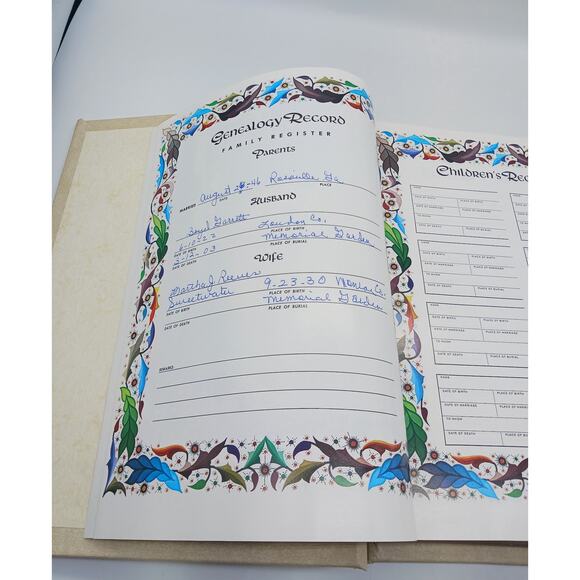 Genealogy Record
FAMILY REGISTER
Parents
August 28-46 Rossville Ga
MARRIED DATE PLACE
Husband
Boyd Garrett Loudon Co,
6-10-23 PLACE OF BIRTH
DATE OF BIRTH Memorial Garden
3-12-03 PLACE OF BURIAL
DATE OF DEATH
Wife
Reeves 9-23-30 Monroe Co.
Sweetwater PLACE OF BIRTH
DATE OF BIRTH Memorial Garden
PLACE OF BURIAL
DATE OF DEATH
REMARKS
Children's Rec
NAME
DATE OF BIRTH PLACE OF BIRTH
DATE OF MARRIAGE PLACE OF MARRIAGE
TO WHOM
DATE OF DEATH PLACE OF BURIAL
NAME
DATE OF BIRTH PLACE OF BIRTH
DATE OF MARRIAGE PLACE OF MARRIAGE
TO WHOM
DATE OF DEATH PLACE OF BURIAL
NAME
DATE OF BIRTH PLACE OF BIRTH
DATE OF MARRIAGE PLACE OF MARRIAGE
TO WHOM
DATE OF DEATH PLACE OF BURIAL